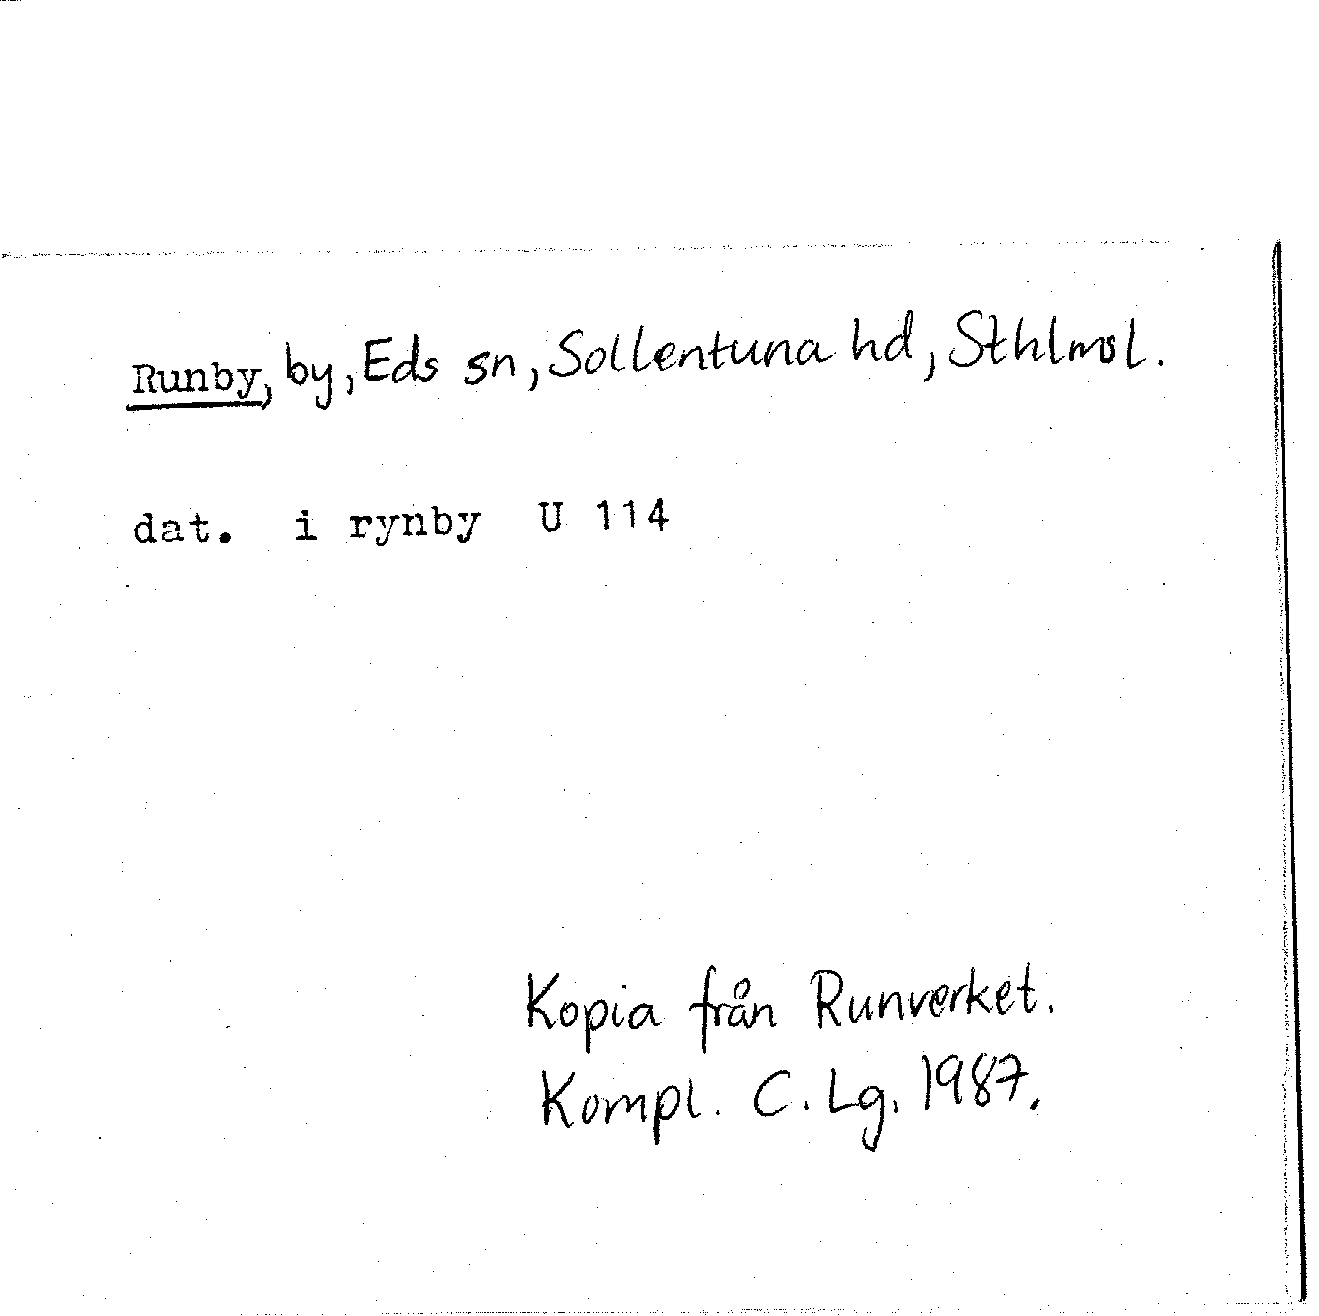 Runby, by, Eds sn, Sollentuna hd, Sthlmsl.
dat. i rynby U 114
Kopia från Runverket.
Kompl. C. Lg. 1987.